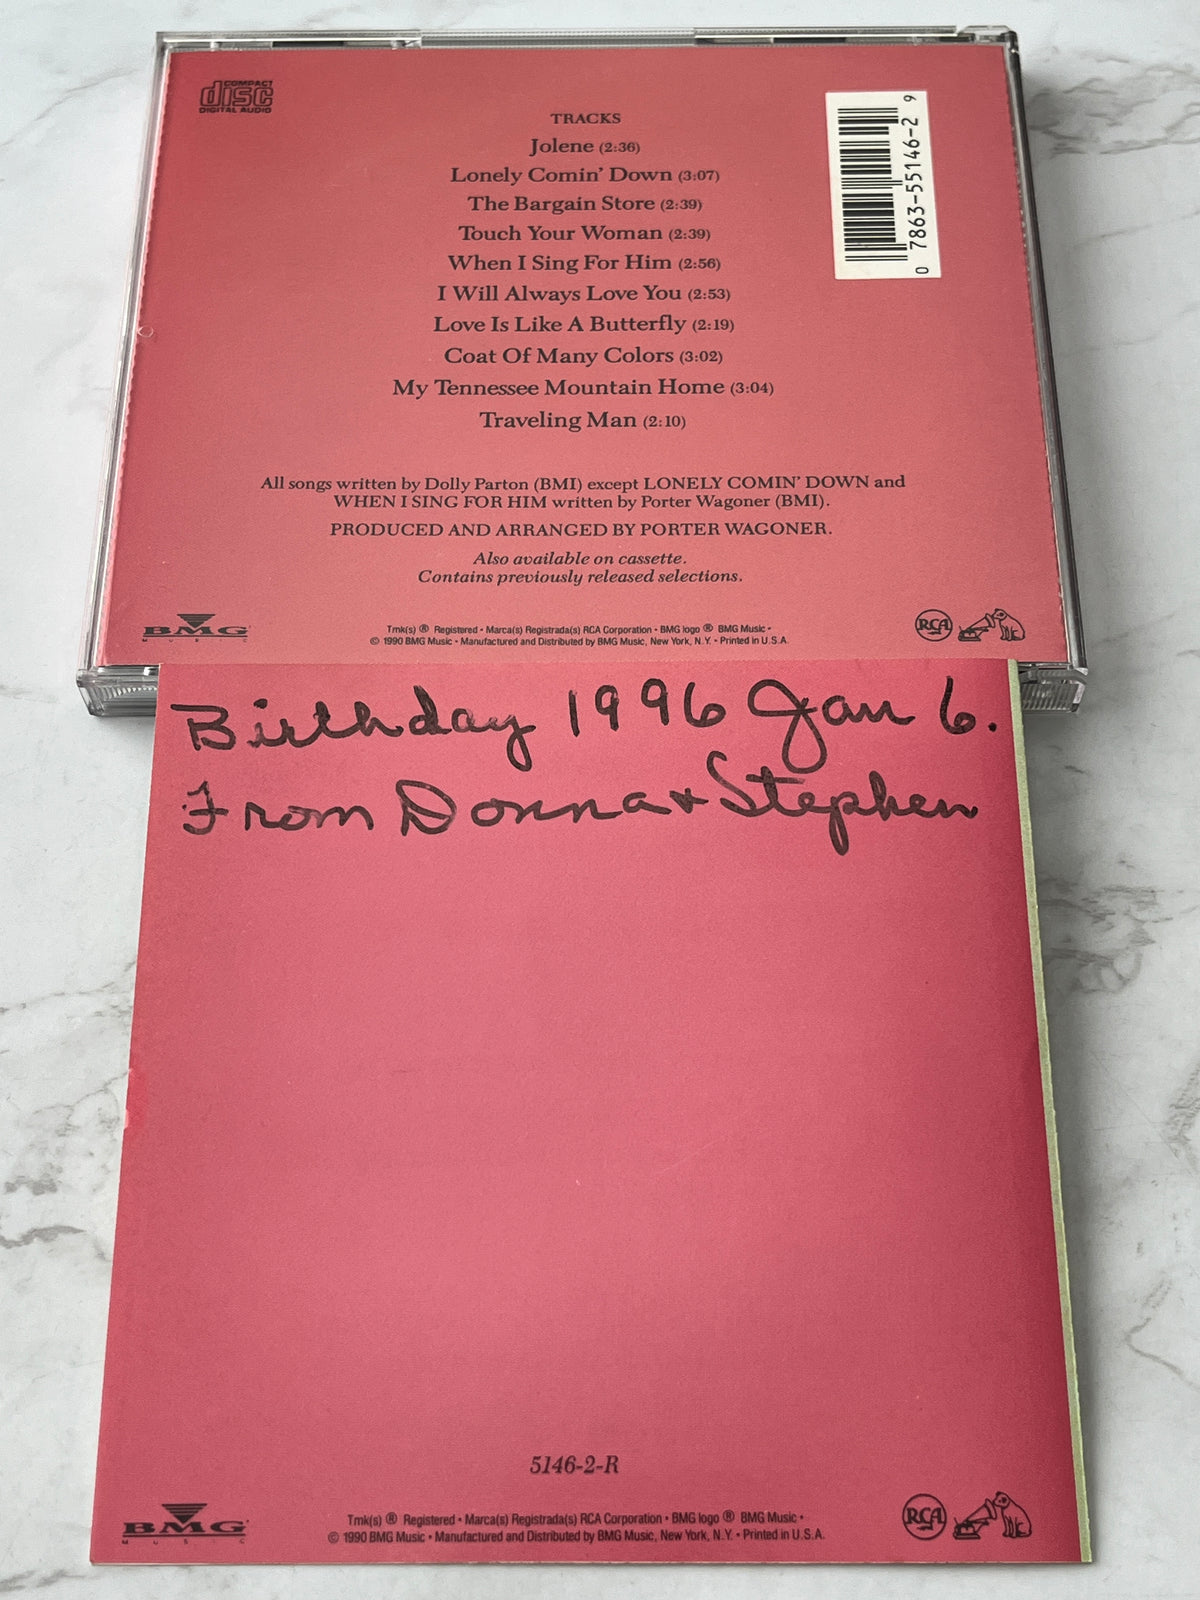 COMPACT
disc
DIGITAL AUDIO
TRACKS
Jolene (2:36)
Lonely Comin' Down (3:07)
The Bargain Store (2:39)
Touch Your Woman (2:39)
When I Sing For Him (2:56)
I Will Always Love You (2:53)
Love Is Like A Butterfly (2:19)
Coat Of Many Colors (3:02)
My Tennessee Mountain Home (3:04)
Traveling Man (2:10)
0 7863-55146-2 9
All songs written by Dolly Parton (BMI) except LONELY COMIN' DOWN and
WHEN I SING FOR HIM written by Porter Wagoner (BMI).
PRODUCED AND ARRANGED BY PORTER WAGONER.
Also available on cassette.
Contains previously released selections.
BMG
MUSIC
Tmk(s) ® Registered • Marca(s) Registrada(s) RCA Corporation • BMG logo ® BMG Music •
© 1990 BMG Music • Manufactured and Distributed by BMG Music, New York, N.Y. • Printed in U.S.A.
RCA
Birthday 1996 Jan 6.
From Donna + Stephen
5146-2-R
BMG
MUSIC
Tmk(s) ® Registered • Marca(s) Registrada(s) RCA Corporation • BMG logo ® BMG Music •
© 1990 BMG Music • Manufactured and Distributed by BMG Music, New York, N.Y. • Printed in U.S.A.
RCA